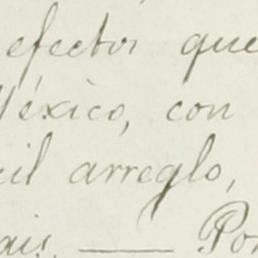 efectos que
México, con
cil arreglo,
ais. — Por